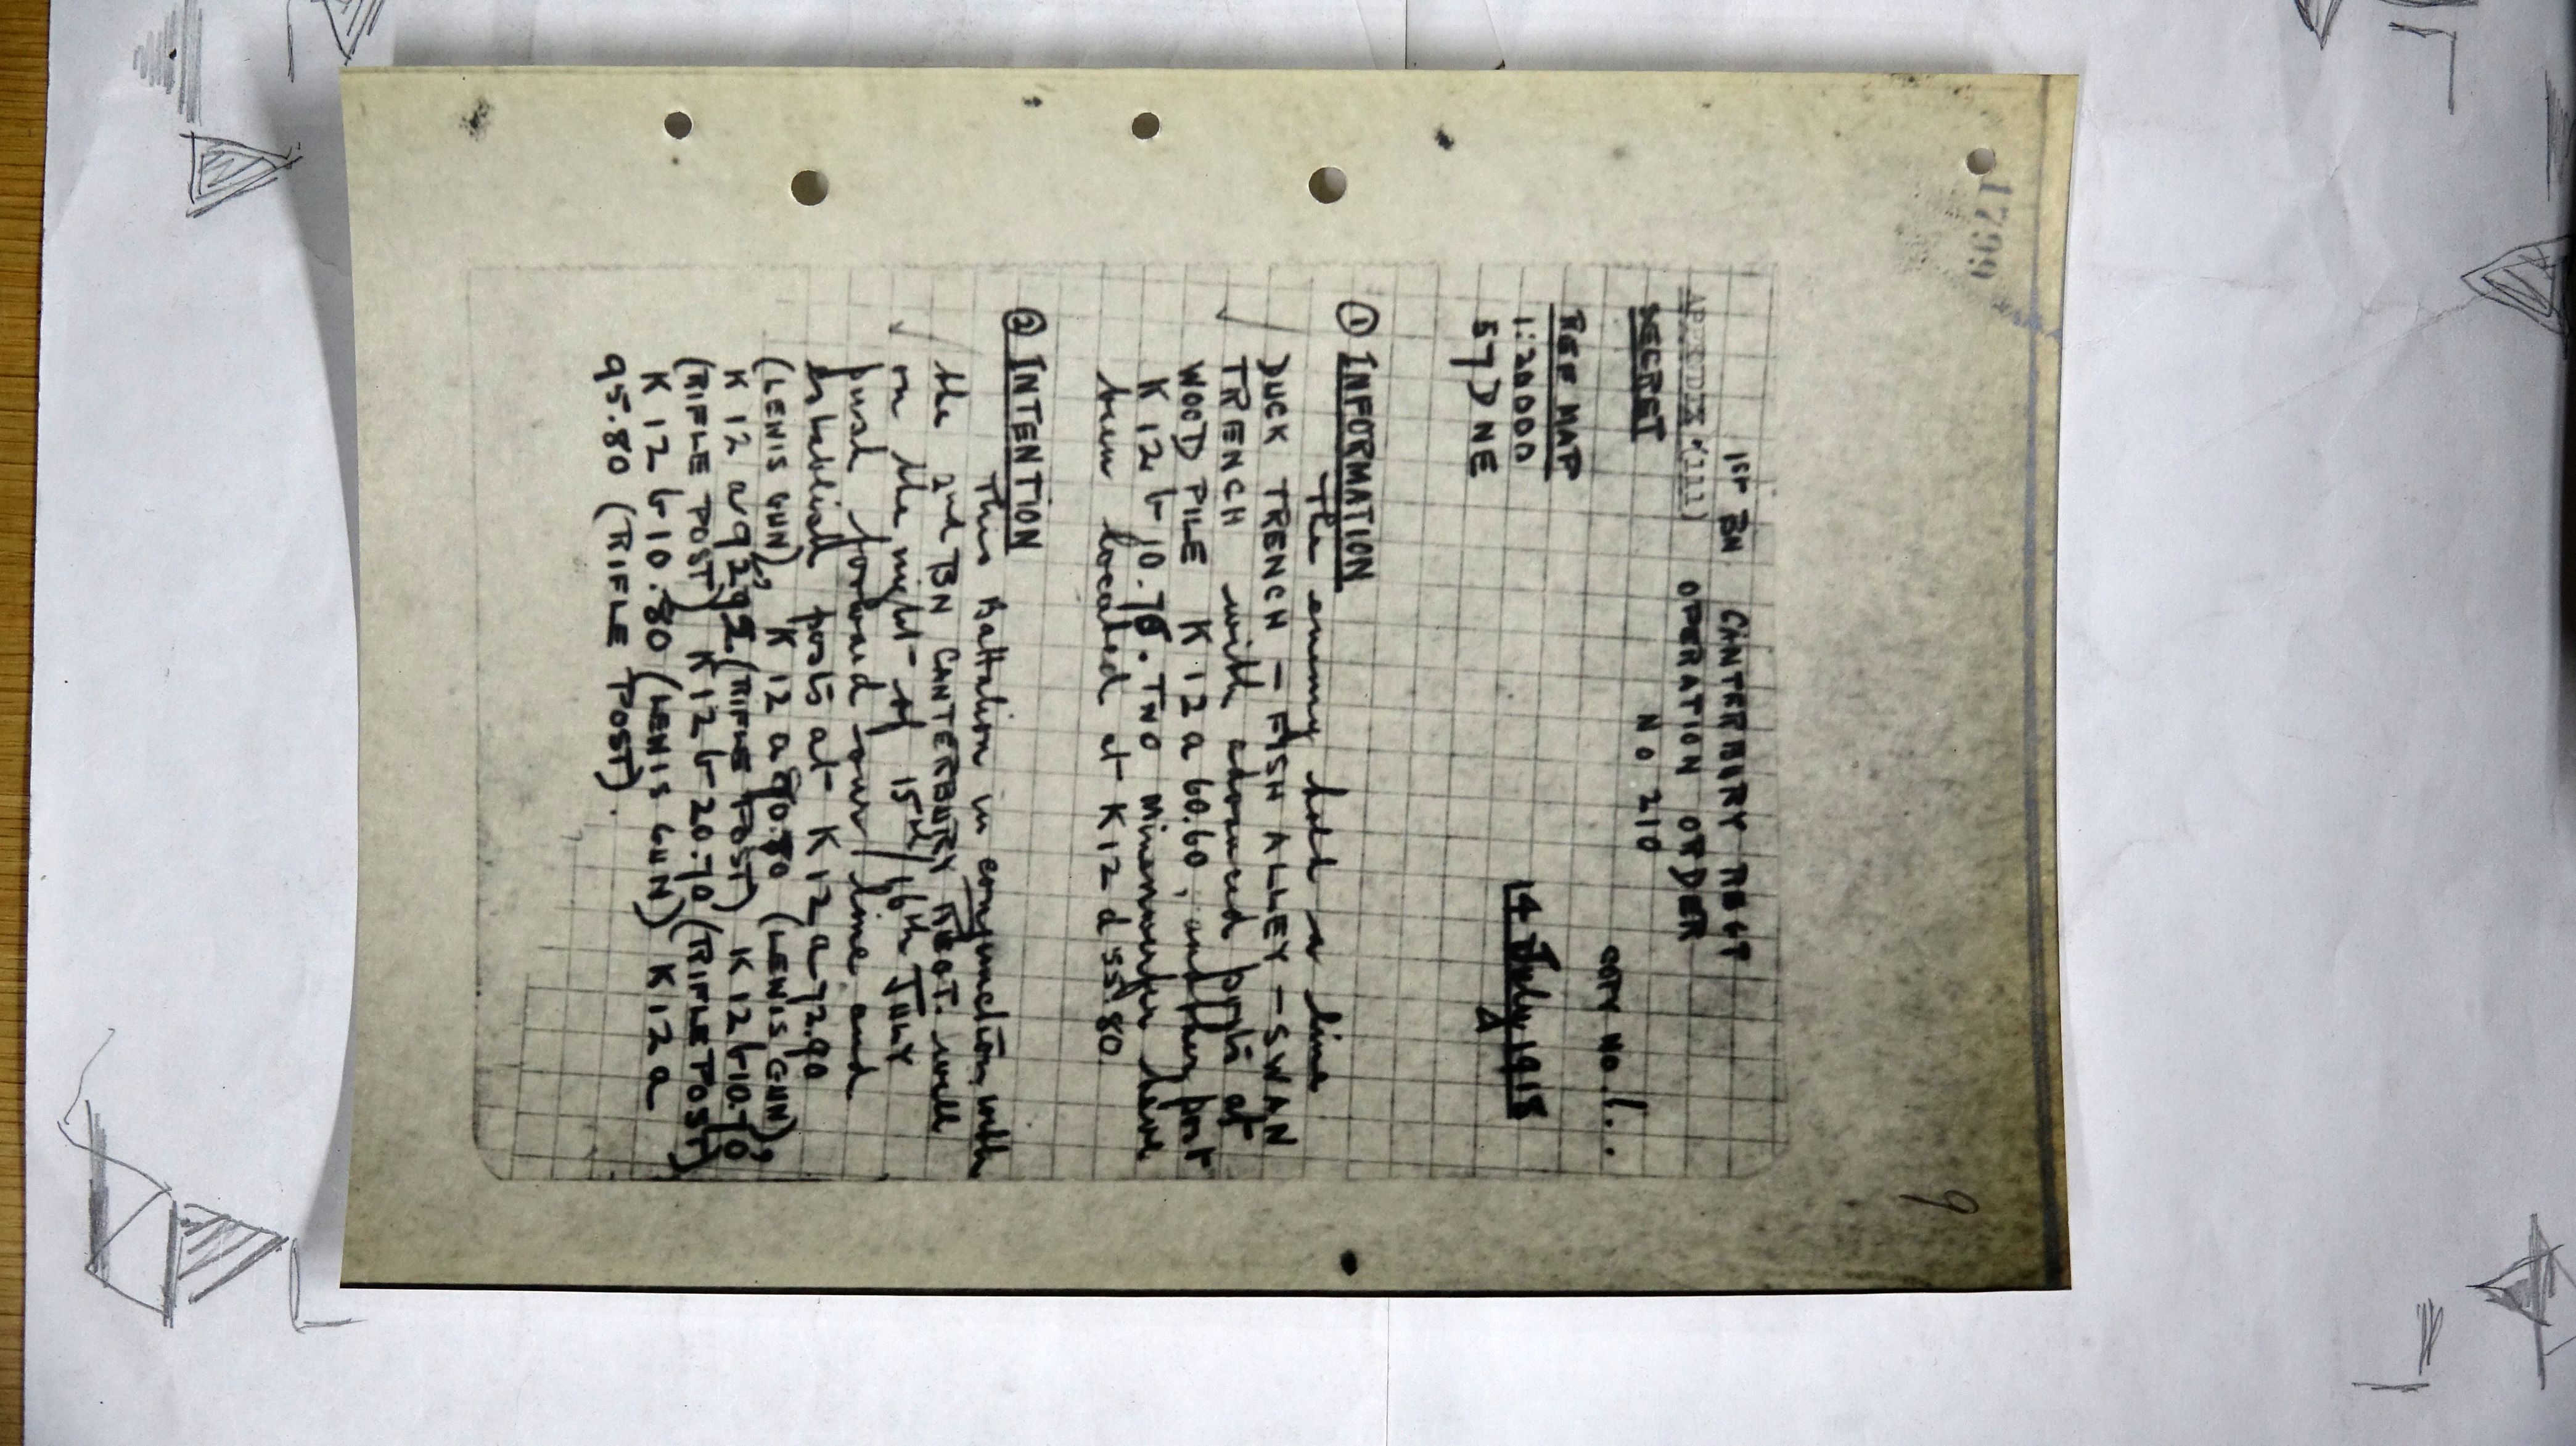 1799
9
1ST BN CANTERBURY REGT
APPENDIX "(111) OPERATION ORDER
SECRET No 210
COPY NO. 1..
REF MAP
1:20000 14 July 1918
57D NE
① INFORMATION
The enemy hold a line
DUCK TRENCH - FISH ALLEY - SWAN
TRENCH with advanced posts at
WOOD PILE K 12 a 60.60, another post
K 12 b 10.70. TWO Minenwerfer have
been located at K12 d 55.80
② INTENTION
This Battalion in conjunction with
the 2nd BN CANTERBURY REGT. will
on the night of 15th/16th JULY
push forward our line and
establish posts at K 12 a 72.90
(LEWIS GUN), K 12 a 90.80 (LEWIS GUN),
K 12 a 92.95 (RIFLE POST) K 12 b 10.70
(RIFLE POST) K 12 b 20.70 (RIFLE POST)
K 12 b 10.80 (LEWIS GUN) K 12 a
95.80 (RIFLE POST).